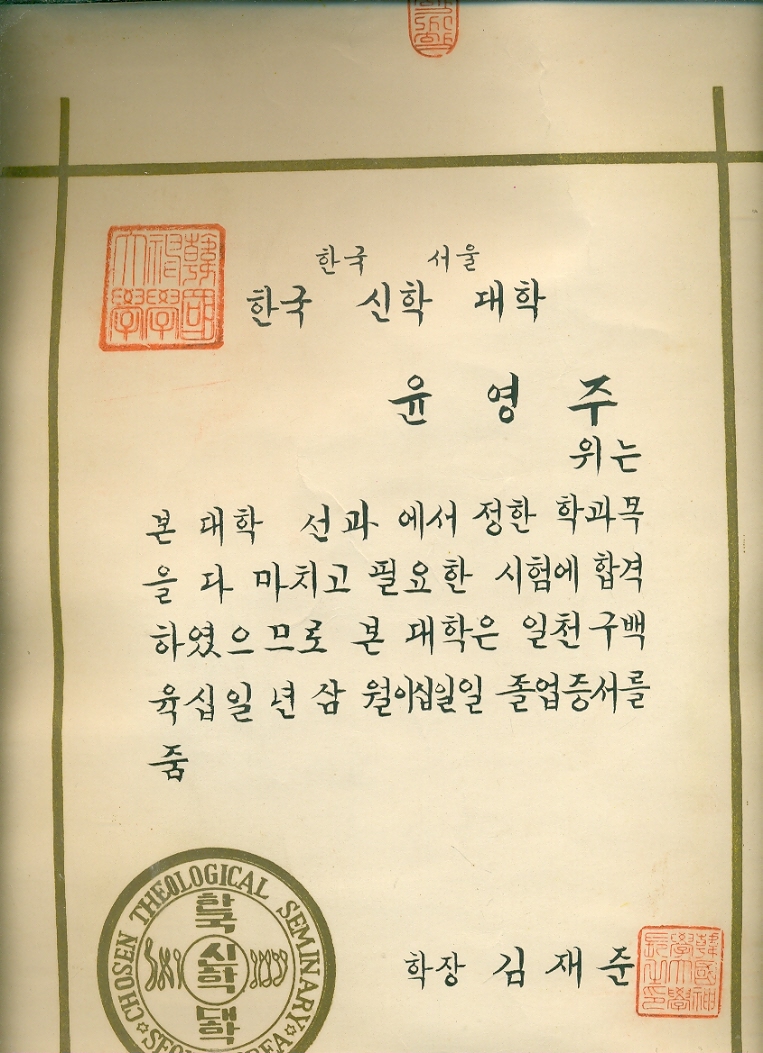 한국 서울
한국 신학 대학
윤 영 주
위는
본 대학 선과 에서 정한 학과목
을 다 마치고 필요한 시험에 합격
하였으므로 본 대학은 일천구백
육십일 년 삼 월이십일일 졸업증서를
줌
학장 김재준
韓國神學大學
韓國神學大學長之印
CHOSEN THEOLOGICAL SEMINARY
한국
신학
대학